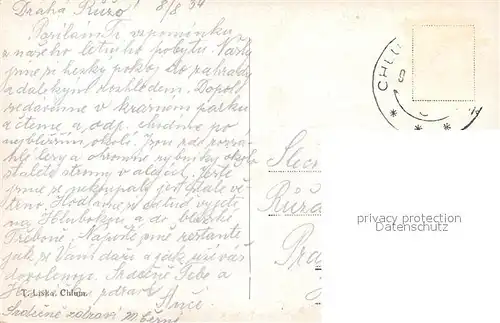 Drahá Růžo! 8/8 34
Posílám Ti vzpomínku
z našeho letního pobytu. Našly
jsme si hezký pokoj do zahrady
a dalekým rozhledem. Dopol.
sedáváme v krásném parku
a čteme a odp. chodíme po
nejbližším okolí. Jsou zde rozsáhlé
lesy a ohromné rybníky okolo
staleté stromy v alejích. Ještě
jsme se nekoupaly jest stále větrno.
Hodláme si odtud vyjeti
na Hlubokou a do blízké
Třeboně. Napiš jsme zvědavé
jak se Vám daří a jak užíváš
dovolenou. Srdečně Tebe a
zdraví
Srdečně zdraví M. Černá
T. Liška, Chlum.
CHLU
Slečna
Růža
Pra
privacy protection
Datenschutz